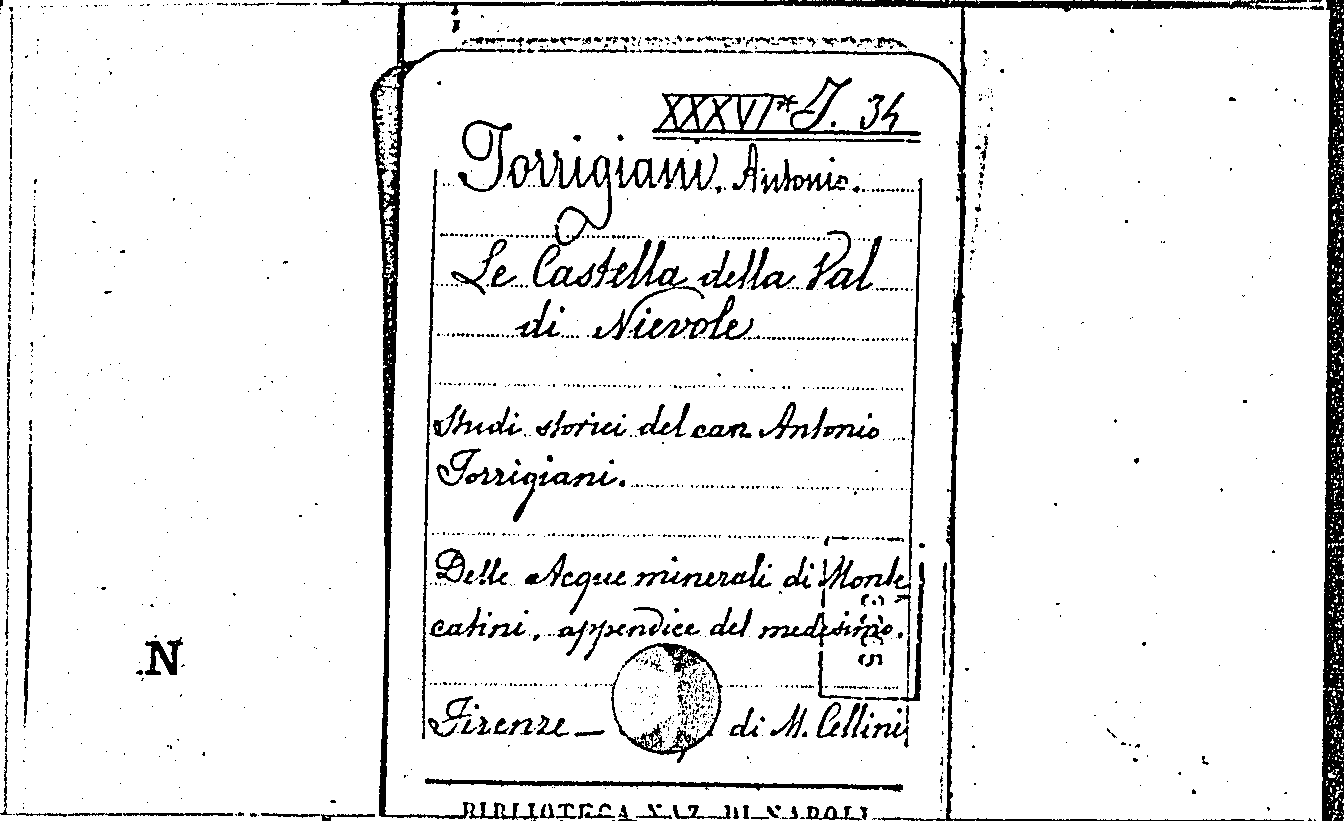 XXXVI* J. 34
Torrigiani, Antonio.
Le Castella della Val
di Nievole
Studi storici del can. Antonio
Torrigiani.
Delle Acque minerali di Monte
catini, appendice del medesimo.
Firenze — di M. Cellini
BIBLIOTECA NAZ. DI NAPOLI
N